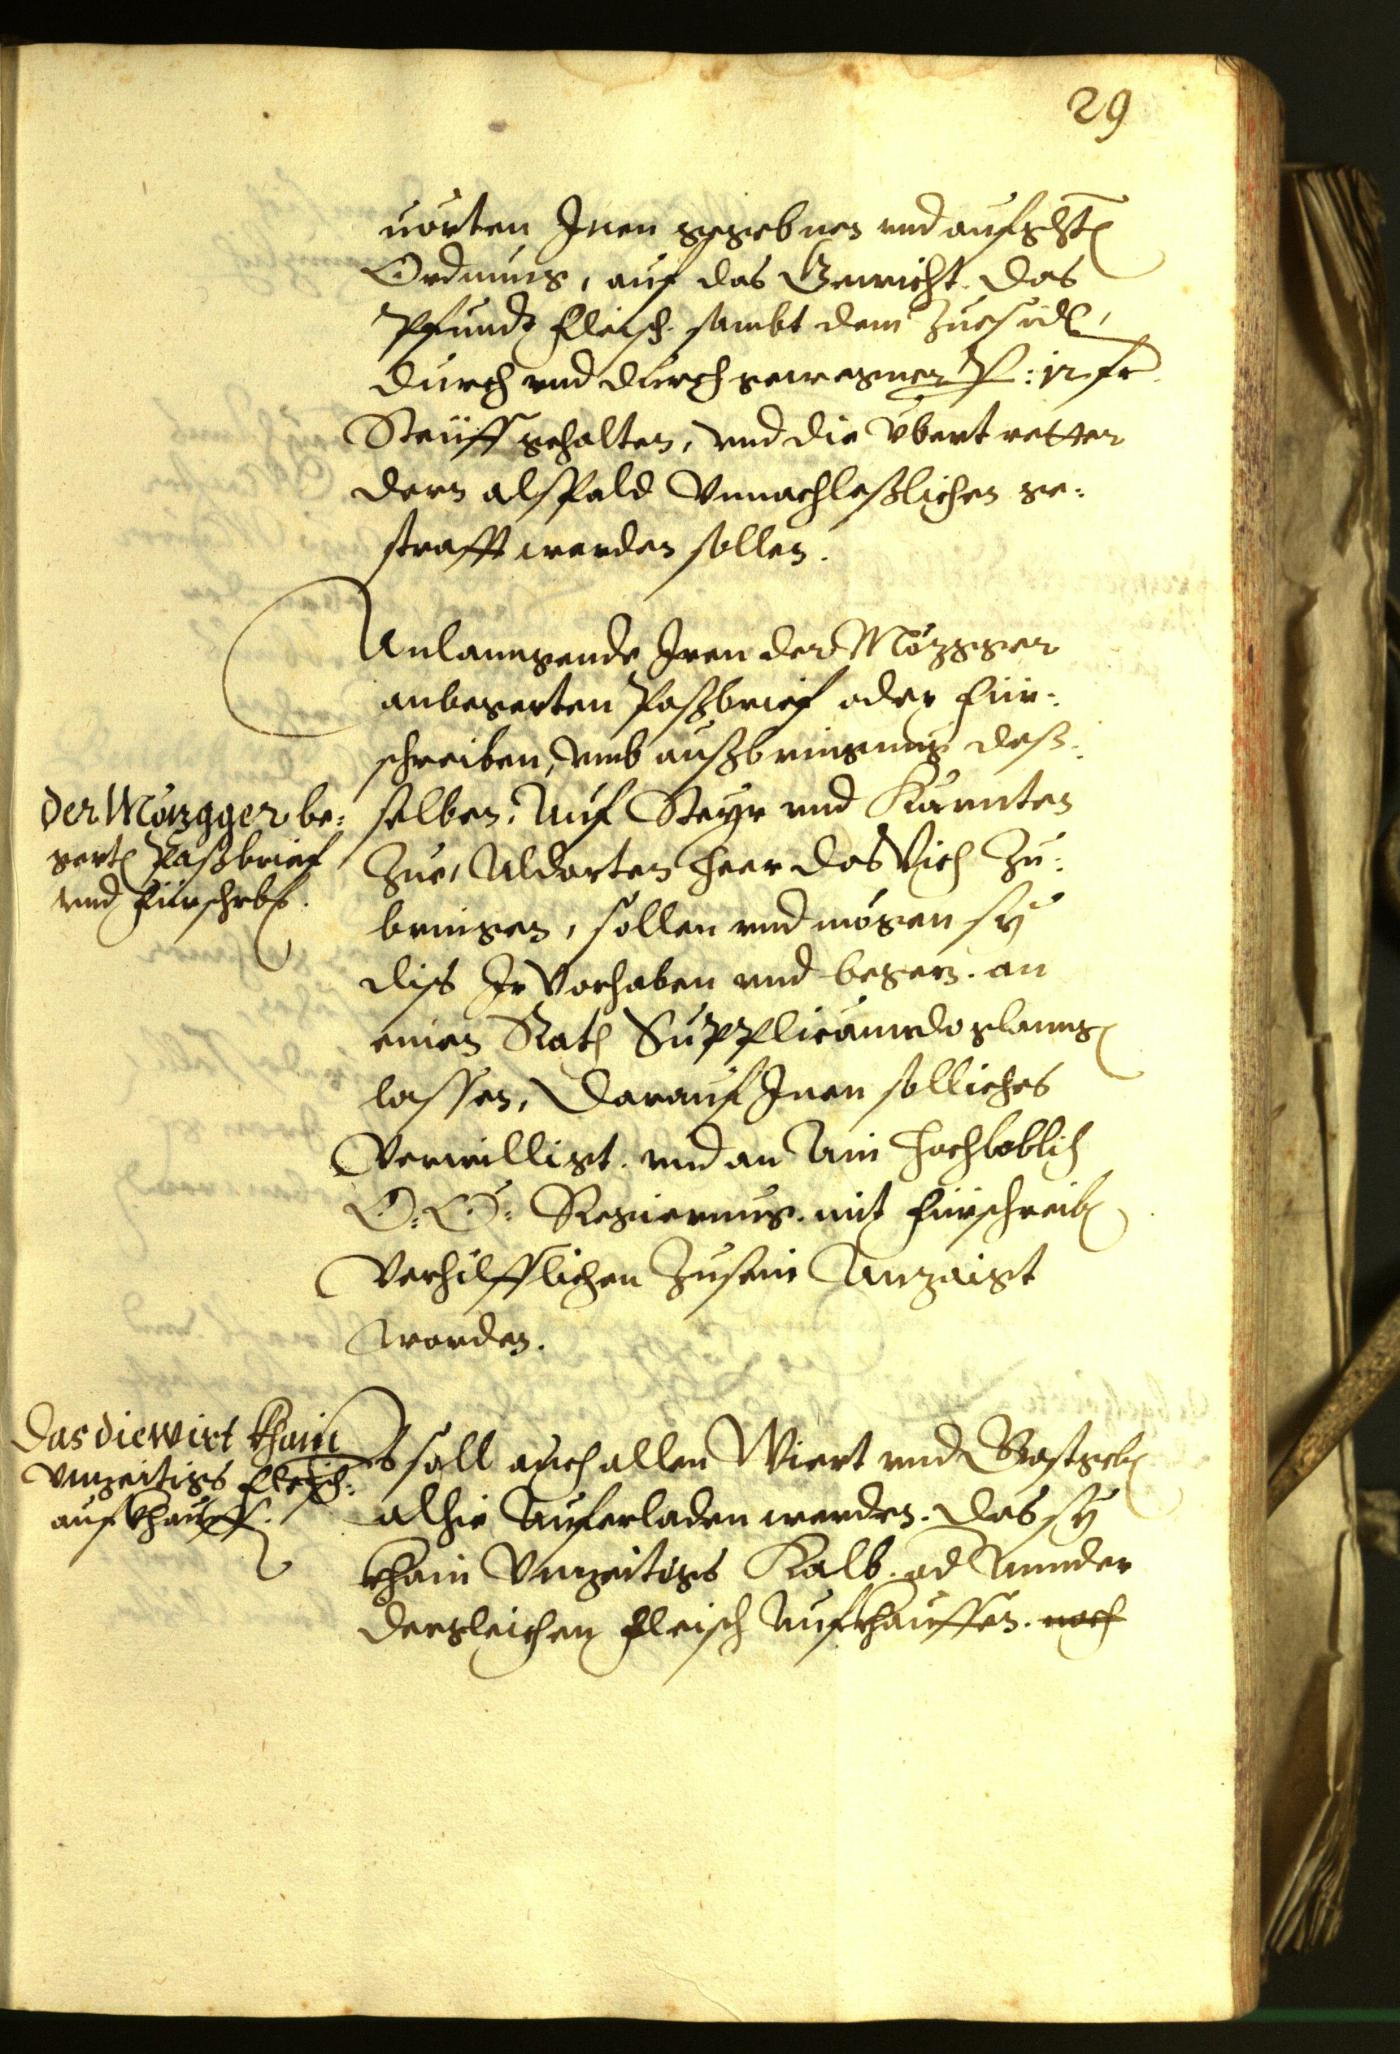 29
uorten Inen gegebnen und aufgeht
Ordnung, auf das Gewicht das
Pfundt fleisch sambt dem Zuesidl,
durch und durch gewegner P: 12 fr
Steiff gehalten, und die ubertretter
dern alspald Unnachleßlichen ge:
strafft werden sollen.
Anlanngende Iren der Mözgger
anbegerten Paßbrief oder für:
schreiben, umb außbringung deß:
selben, Auf Steyr und Kärnten
Zue, Aldorten heer das Vich Zu:
bringen, sollen und mögen sy
diss Ir Vorhaben und begern. an
einen Rath Supplicando glanngen
lassen, Darauf Inen solliches
Verwilligt. und an Ain hochloblich
O: Ö: Regierung. mit fürschreiben
Verhilfflichen Zusein Anzaigt
worden.
Der Mözgger be:
gerten Paßbrief
und fürschrbn.
Es soll auch allen Wiert und Gastgeben
alhie Auferladen werden. Das sy
khain Unzeitigs Kalb. od Annder
dergleichen fleisch Aufkhauffen. noch
Das die Wirt khain
Unzeitigs fleisch:
aufkhauffn.